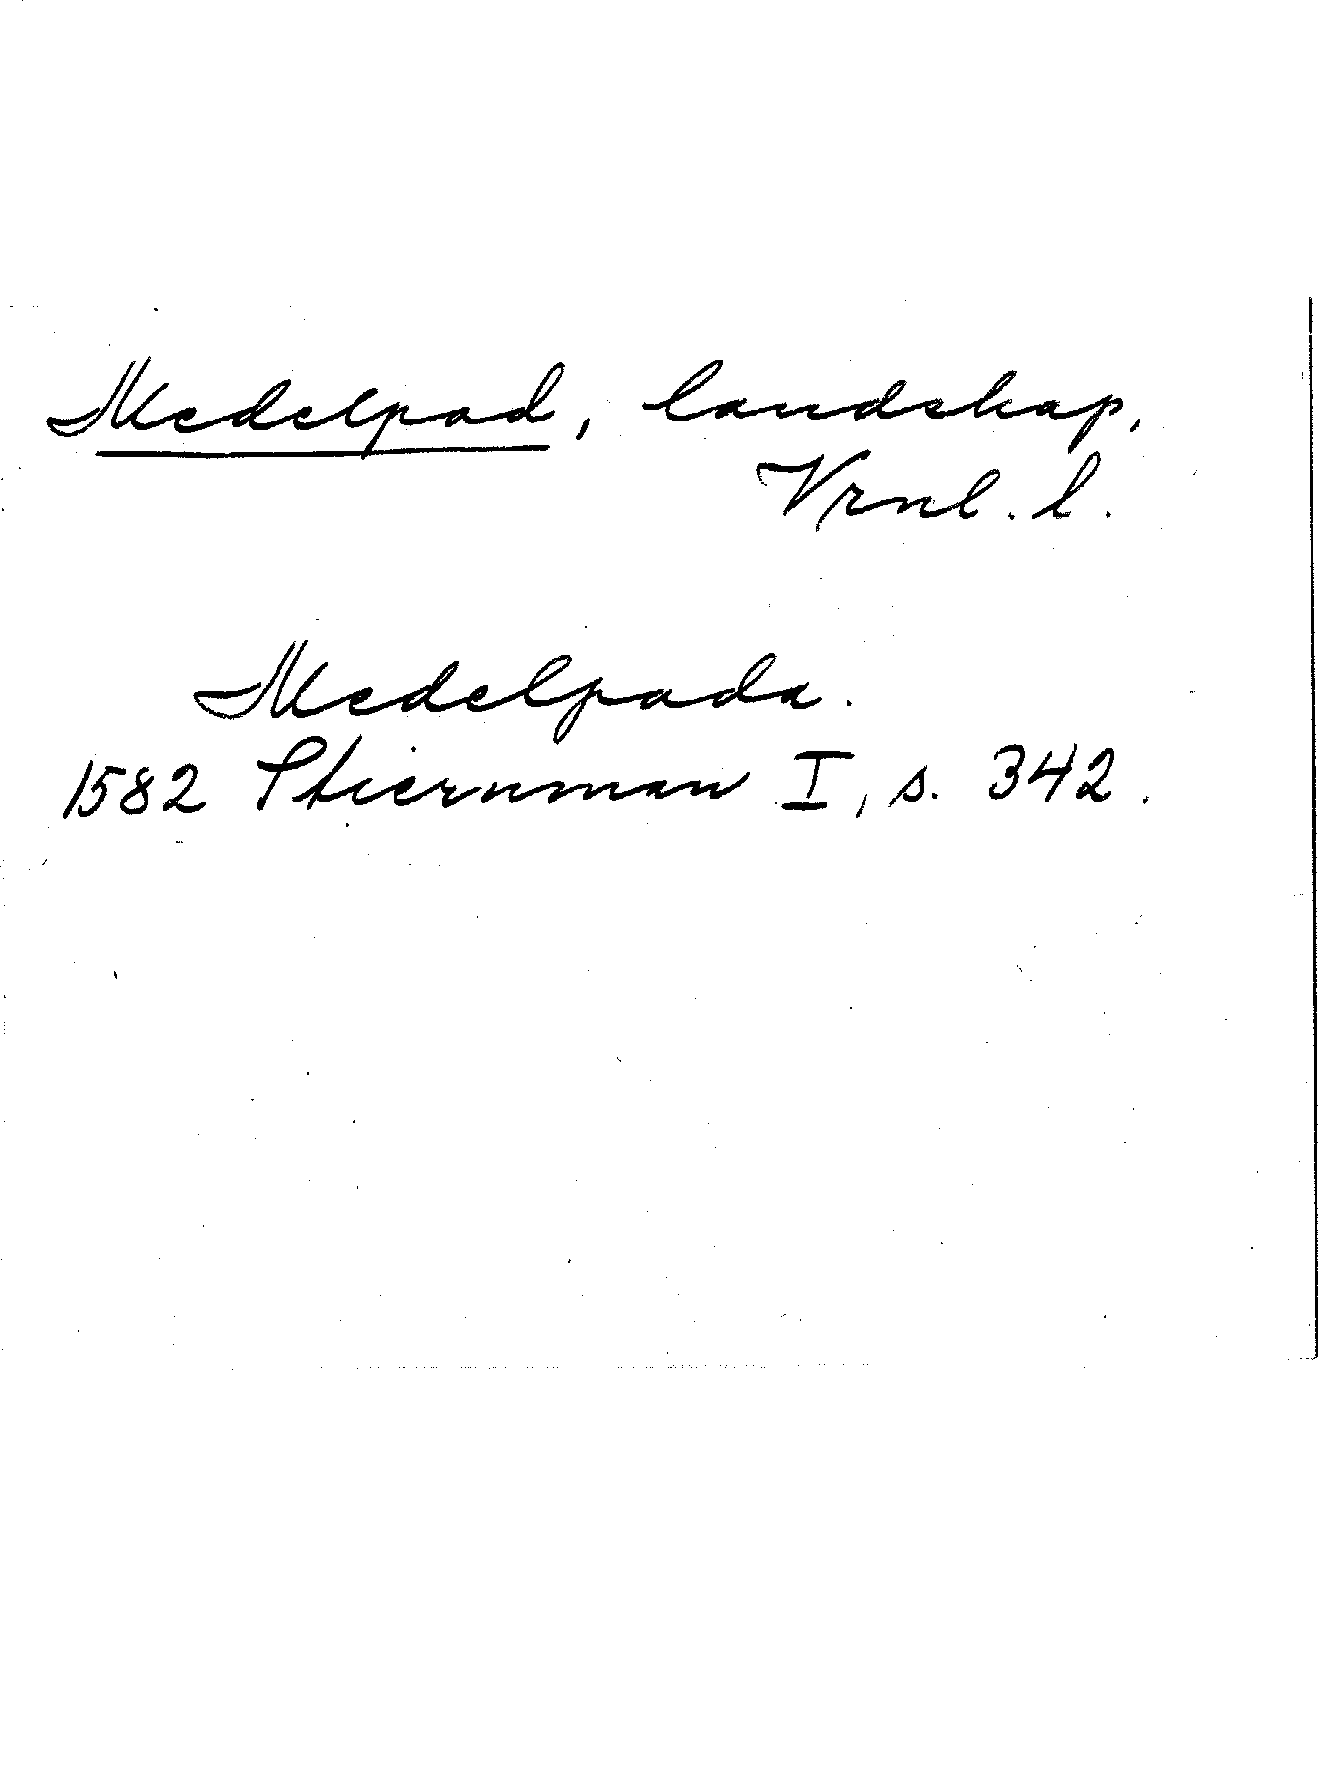 Medelpad, landskap,
Vrnl. l.
Medelpada.
1582 Stiernman I, s. 342.